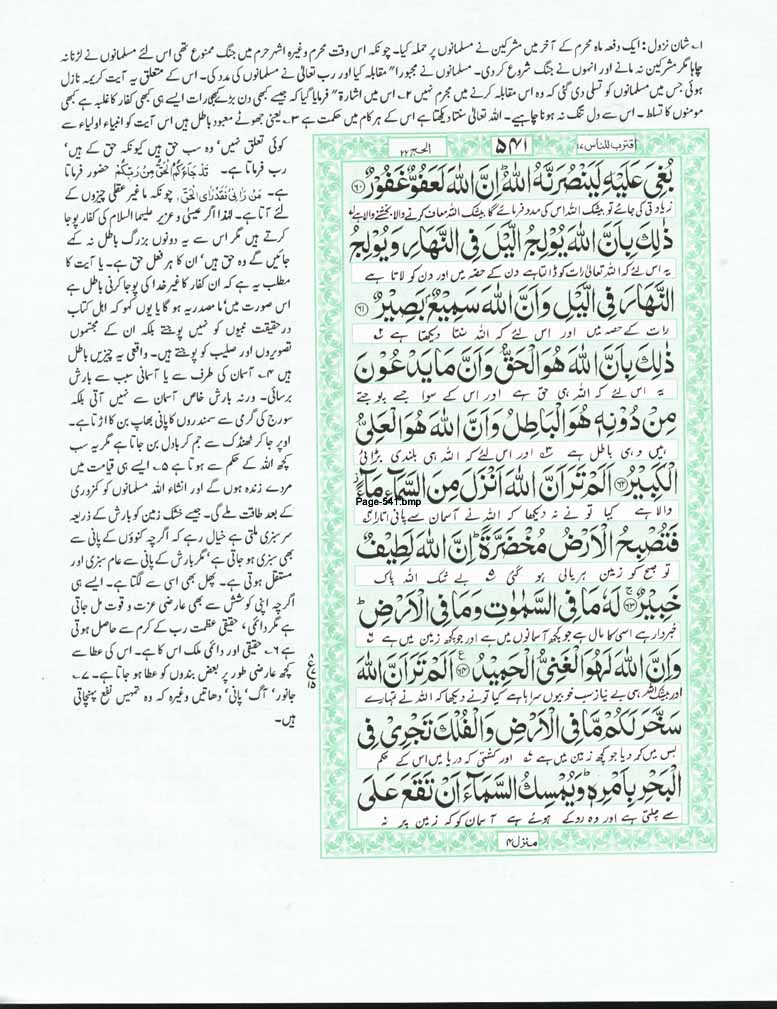 ۱۔ شان نزول: ایک دفعہ ماہ محرم کے آخر میں مشرکین نے مسلمانوں پر حملہ کیا۔ چونکہ اس وقت محرم وغیرہ اشہر حرم میں جنگ ممنوع تھی اس لئے مسلمانوں نے لڑنا نہ
چاہا مگر مشرکین نہ مانے اور انہوں نے جنگ شروع کر دی۔ مسلمانوں نے مجبورا" مقابلہ کیا اور رب تعالیٰ نے مسلمانوں کی مدد کی۔ اس کے متعلق یہ آیت کریمہ نازل
ہوئی جس میں مسلمانوں کو تسلی دی گئی کہ وہ اس مقابلہ کرنے میں مجرم نہیں ۲۔ اس میں اشارۃ" فرمایا گیا کہ جیسے کبھی دن بڑے کبھی رات ایسے ہی کبھی کفار کا غلبہ ہے کبھی
مومنوں کا تسلط۔ اس سے دل تنگ نہ ہونا چاہیے۔ اللہ تعالیٰ سنتا دیکھتا ہے اس کے ہر کام میں حکمت ہے ۳۔ یعنی جھوٹے معبود باطل ہیں اس آیت کو انبیاء اولیاء سے
اقترب للناس ۱۷
۵۴۱
الحج ۲۲
بُغِیَ عَلَیْهِ لَیَنْصُرَنَّهُ اللّٰهُ اِنَّ اللّٰهَ لَعَفُوٌّ غَفُوْرٌ ۶۰
زیادتی کی جائے تو بیشک اللہ اس کی مدد فرمائے گا بیشک اللہ معاف کرنے والا بخشنے والا ہے
ذٰلِكَ بِاَنَّ اللّٰهَ یُوْلِجُ الَّیْلَ فِی النَّهَارِ وَیُوْلِجُ
یہ اس لئے کہ اللہ تعالیٰ رات کو ڈالتا ہے دن کے حصہ میں اور دن کو لاتا ہے
النَّهَارَ فِی الَّیْلِ وَاَنَّ اللّٰهَ سَمِیْعٌ بَصِیْرٌ ۶۱
رات کے حصہ میں اور اس لئے کہ اللہ سنتا دیکھتا ہے
ذٰلِكَ بِاَنَّ اللّٰهَ هُوَ الْحَقُّ وَاَنَّ مَا یَدْعُوْنَ
یہ اس لئے کہ اللہ ہی حق ہے اور اس کے سوا جسے پوجتے
مِنْ دُوْنِهٖ هُوَ الْبَاطِلُ وَاَنَّ اللّٰهَ هُوَ الْعَلِیُّ
ہیں وہی باطل ہے اور اس لئے کہ اللہ ہی بلندی بڑائی
الْكَبِیْرُ ۶۲ اَلَمْ تَرَ اَنَّ اللّٰهَ اَنْزَلَ مِنَ السَّمَآءِ مَآءً
Page-541.bmp
والا ہے کیا تو نے نہ دیکھا کہ اللہ نے آسمان سے پانی اتارا
فَتُصْبِحُ الْاَرْضُ مُخْضَرَّةً اِنَّ اللّٰهَ لَطِیْفٌ
تو صبح کو زمین ہریالی ہو گئی بے شک اللہ پاک
خَبِیْرٌ ۶۳ لَهٗ مَا فِی السَّمٰوٰتِ وَمَا فِی الْاَرْضِ
خبردار ہے اسی کا مال ہے جو کچھ آسمانوں میں ہے اور جو کچھ زمین میں ہے
وَاِنَّ اللّٰهَ لَهُوَ الْغَنِیُّ الْحَمِیْدُ ۶۴ اَلَمْ تَرَ اَنَّ اللّٰهَ
اور بیشک اللہ ہی بے نیاز سب خوبیوں سراہا ہے کیا تو نے دیکھا کہ اللہ نے تمہارے
سَخَّرَ لَكُمْ مَّا فِی الْاَرْضِ وَالْفُلْكَ تَجْرِیْ فِی
بس میں کر دیا جو کچھ زمین میں ہے اور کشتی کہ دریا میں اس کے حکم
الْبَحْرِ بِاَمْرِهٖ وَیُمْسِكُ السَّمَآءَ اَنْ تَقَعَ عَلَی
سے چلتی ہے اور وہ روکے ہوئے ہے آسمان کو کہ زمین پر نہ
منزل ۴
کوئی تعلق نہیں' وہ سب حق ہیں کیونکہ حق کے ہیں'
رب فرماتا ہے۔ قَدْ جَآءَكُمُ الْحَقُّ مِنْ رَّبِّكُمْ حضور فرماتا
ہے۔ مَنْ رَاٰنِیْ فَقَدْ رَاَی الْحَقَّ، چونکہ ما غیر عقلی چیزوں کے
لئے آتا ہے۔ لہٰذا اگر عیسیٰ و عزیر علیہما السلام کی کفار پوجا
کرتے ہیں مگر اس سے یہ دونوں بزرگ باطل نہ کہے
جائیں گے وہ حق ہیں' ان کا ہر فعل حق ہے۔ یا آیت کا
مطلب یہ ہے کہ ان کفار کا غیر خدا کی پوجا کرنی باطل ہے
اس صورت میں' ما مصدریہ ہو گا یا یوں کہو کہ اہل کتاب
درحقیقت نبیوں کو نہیں پوجتے بلکہ ان کے مجسموں
تصویروں اور صلیب کو پوجتے ہیں۔ واقعی یہ چیزیں باطل
ہیں ۴۔ آسمان کی طرف سے یا آسمانی سبب سے بارش
برسائی۔ ورنہ بارش خاص آسمان سے نہیں آتی بلکہ
سورج کی گرمی سے سمندروں کا پانی بھاپ بن کا اڑتا ہے۔
اوپر جا کر ٹھنڈک سے جم کر بادل بن جاتا ہے مگر یہ سب
کچھ اللہ کے حکم سے ہوتا ہے ۵۔ ایسے ہی قیامت میں
مردے زندہ ہوں گے اور انشاء اللہ مسلمانوں کو کمزوری
کے بعد طاقت ملے گی۔ جیسے خشک زمین کو بارش کے ذریعہ
سرسبزی ملتی ہے خیال رہے کہ اگرچہ کنوؤں کے پانی سے
بھی سبزی ہو جاتی ہے' مگر بارش کے پانی سے عام سبزی اور
مستقل ہوتی ہے۔ پھل بھی اسی سے لگتا ہے۔ ایسے ہی
اگرچہ اپنی کوشش سے بھی عارضی عزت و قوت مل جاتی
ہے مگر دائمی، حقیقی عظمت رب کے کرم سے حاصل ہوتی
ہے ۶۔ حقیقی اور دائمی ملک اس کا ہے۔ اس کی عطا سے
کچھ عارضی طور پر بعض بندوں کو عطا ہو جاتا ہے۔ ۷۔
جانور' آگ' پانی' دھاتیں وغیرہ کہ وہ تمہیں نفع پہنچاتی
ہیں۔